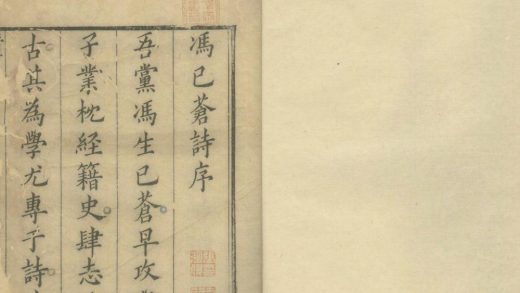 馮已蒼詩序
吾黨馮生已蒼早攻
子業枕經籍史肆志
古其為學尤專于詩